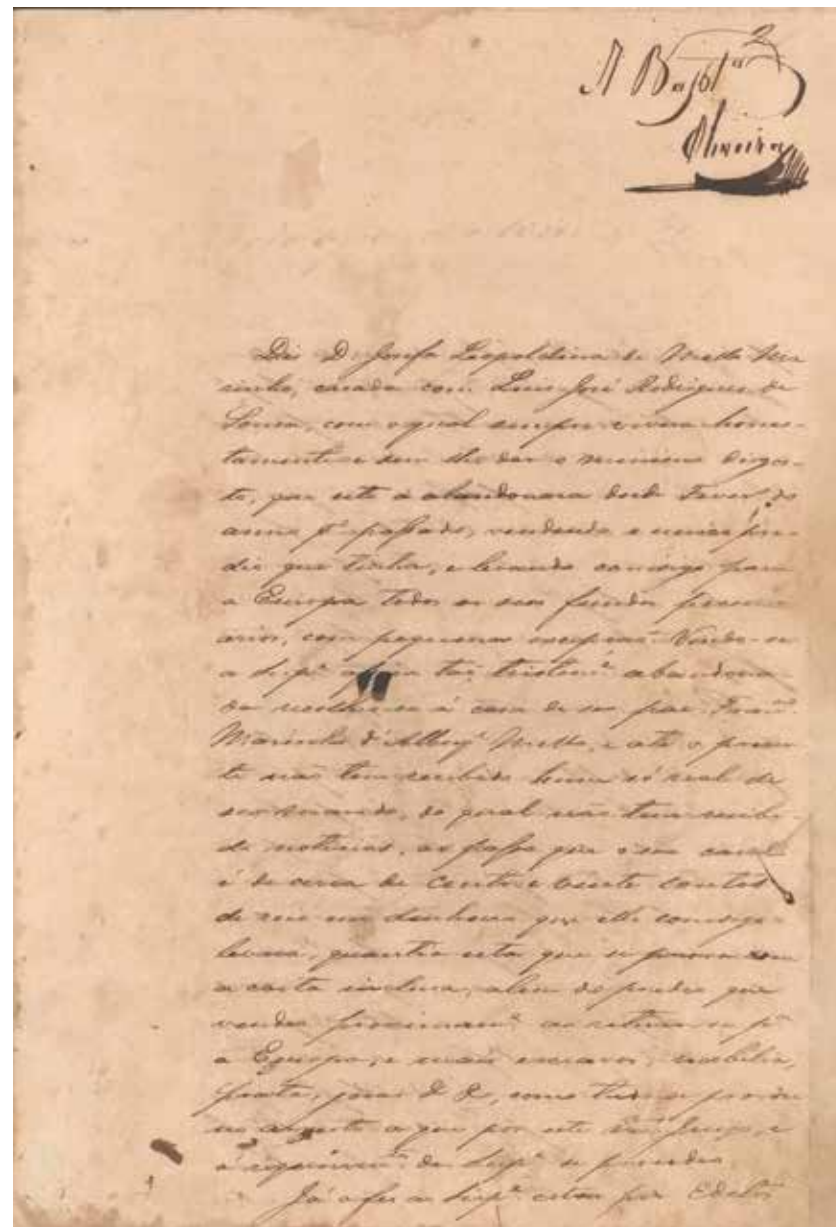 2
A Bast.ᵃ
Oliveira
Diz D. Josefa Leopoldina de Mello Ma
rinho, casada com Luis José Rodrigues de
Sousa, com o qual sempre vivera hones-
tamente e sem lhe dar o minimo disgos-
to, que este a abandonara desde Fever.º do
anno p.º passado, vendendo o unico pre-
dio que tinha, e levando comsigo para
a Europa todos os seus fundos pecuni
arios, com pequenas excepções. Vendo-se
a Supp.ᵉ assim tão tristem.ᵉ abandona-
da recolheu-se á casa de seu pae Fran.ᶜᵒ
Marinho d'Albuq.ᵉ Mello, e até o presen-
te não tem recebido hum só real de
seo marido, do qual não tem recebi-
do noticias, ao passo que o seu casal
é de cerca de cento e vinte contos
de reis em dinheiro que elle comsigo
levara, quantia esta que se prova com
a carta inclusa, alem do predio que
vendeo proximam.ᵉ ao retirar-se p.ᵃ
a Europa, e mais escravos, mobilia,
prata, joias & &, como tudo se provou
no a que por este Juizo, e
á requerim.ᵗᵒ da Supp.ᵉ se procedeo.
Já a fez a Supp.ᵉ citar por Edital